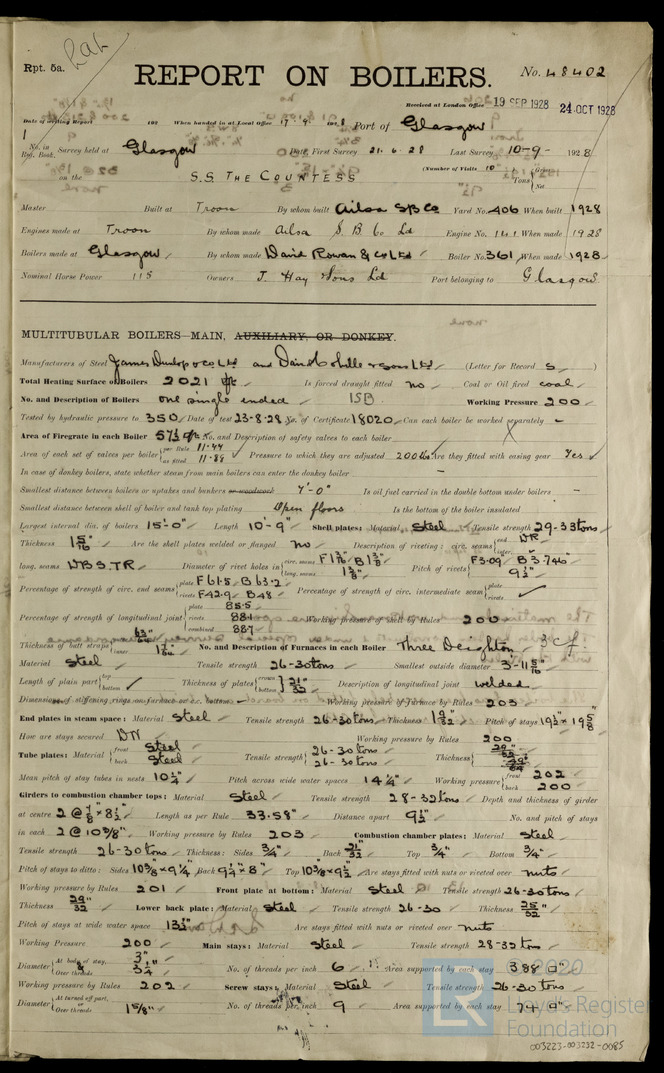 Rpt. 5a.
REPORT ON BOILERS.
No. 48402
Received at London Office 19 SEP 1928 24 OCT 1928
Date of writing Report 192 When handed in at Local Office 17. 9. 1928 Port of Glasgow
No. in Reg. Book. Survey held at Glasgow Date, First Survey 21. 6. 28 Last Survey 10-9- 1928
on the S.S. THE COUNTESS (Number of Visits 10) Tons { Gross Net
Master Built at Troon By whom built Ailsa SB Co Yard No. 406 When built 1928
Engines made at Troon By whom made Ailsa S. B Co Ld Engine No. 141 When made 1928
Boilers made at Glasgow By whom made David Rowan & Co Ltd Boiler No. 361 When made 1928
Nominal Horse Power 115 Owners J. Hay & Sons Ld Port belonging to Glasgow
MULTITUBULAR BOILERS—MAIN, AUXILIARY, OR DONKEY.
Manufacturers of Steel James Dunlop & Co Ltd and David Colville & Sons Ltd (Letter for Record S)
Total Heating Surface of Boilers 2021 Is forced draught fitted no Coal or Oil fired coal
No. and Description of Boilers one single ended 1SB Working Pressure 200
Tested by hydraulic pressure to 350 Date of test 23-8-28 No. of Certificate 18020 Can each boiler be worked separately –
Area of Firegrate in each Boiler 57½ No. and Description of safety valves to each boiler
Area of each set of valves per boiler { per Rule 11.44 as fitted 11.89 Pressure to which they are adjusted 200 lbs Are they fitted with easing gear Yes
In case of donkey boilers, state whether steam from main boilers can enter the donkey boiler –
Smallest distance between boilers or uptakes and bunkers or woodwork 4'-0" Is oil fuel carried in the double bottom under boilers –
Smallest distance between shell of boiler and tank top plating Open floors Is the bottom of the boiler insulated
Largest internal dia. of boilers 15'-0" Length 10'-9" Shell plates: Material Steel Tensile strength 29-33 tons
Thickness 1 5/16" Are the shell plates welded or flanged no Description of riveting: circ. seams { end DR inter.
long. seams DBS.TR. Diameter of rivet holes in { circ. seams F 1 3/16" B 1 3/8" long. seams 1 3/8" Pitch of rivets { F 3.09 B 3.746" 9½"
Percentage of strength of circ. end seams { plate F 61.5 B 63.2 rivets F 42.9 B 48 Percentage of strength of circ. intermediate seam { plate rivets
Percentage of strength of longitudinal joint { plate 85.5 rivets 88.1 combined 88.7 Working pressure of shell by Rules 200
Thickness of butt straps { outer inner No. and Description of Furnaces in each Boiler Three Deighton 3 cf.
Material Steel Tensile strength 26-30 tons Smallest outside diameter 3'-11 5/16"
Length of plain part { top bottom Thickness of plates { crown bottom 21/32" Description of longitudinal joint welded
Dimensions of stiffening rings on furnace or c.c. bottom – Working pressure of furnace by Rules 203
End plates in steam space: Material Steel Tensile strength 26-30 tons Thickness 1 9/32" Pitch of stays 19½" x 19 5/8"
How are stays secured DN Working pressure by Rules 200
Tube plates: Material { front Steel back Steel Tensile strength { 26-30 tons 26-30 tons Thickness { 29/32"
Mean pitch of stay tubes in nests 10¼" Pitch across wide water spaces 14¼" Working pressure { front 202 back 200
Girders to combustion chamber tops: Material Steel Tensile strength 28-32 tons Depth and thickness of girder
at centre 2 @ 7/8" x 8½" Length as per Rule 33.58" Distance apart 9½" No. and pitch of stays
in each 2 @ 10 3/8" Working pressure by Rules 203 Combustion chamber plates: Material Steel
Tensile strength 26-30 tons Thickness: Sides 3/4" Back 21/32" Top 3/4" Bottom 3/4"
Pitch of stays to ditto: Sides 10 3/8" x 9¼" Back 9¼" x 8" Top 10 3/8" x 9½" Are stays fitted with nuts or riveted over nuts
Working pressure by Rules 201 Front plate at bottom: Material Steel Tensile strength 26-30 tons
Thickness 29/32" Lower back plate: Material Steel Tensile strength 26-30 Thickness 25/32"
Pitch of stays at wide water space 13½" Are stays fitted with nuts or riveted over nuts
Working Pressure 200 Main stays: Material Steel Tensile strength 28-32 tons
Diameter { At body of stay, 3" Over threads 3¼" No. of threads per inch 6 Area supported by each stay 388 □"
Working pressure by Rules 202 Screw stays: Material Steel Tensile strength 26-30 tons
Diameter { At turned off part, Over threads 1 5/8" No. of threads per inch 9 Area supported by each stay 74 □"
© 2020
Lloyd's Register
Foundation
003223-003232-0085